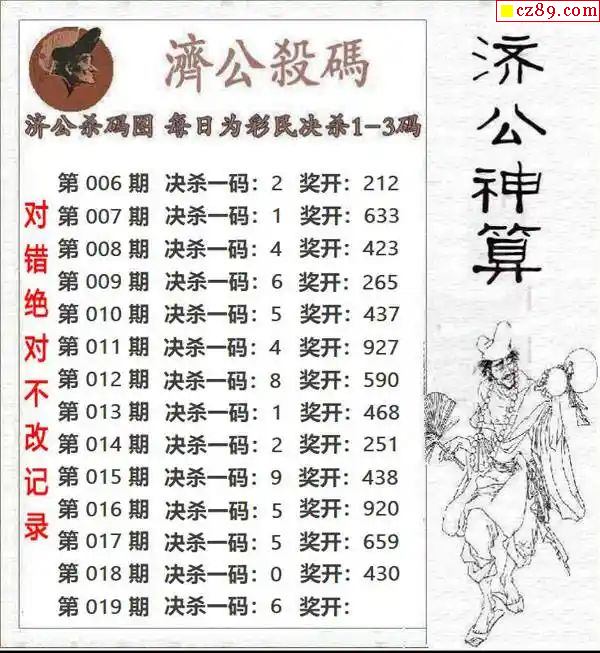 cz89.com
濟公殺碼
济公杀码图 每日为彩民决杀1-3码
第 006 期 决杀一码：2 奖开：212
第 007 期 决杀一码：1 奖开：633
第 008 期 决杀一码：4 奖开：423
第 009 期 决杀一码：6 奖开：265
第 010 期 决杀一码：5 奖开：437
第 011 期 决杀一码：4 奖开：927
第 012 期 决杀一码：8 奖开：590
第 013 期 决杀一码：1 奖开：468
第 014 期 决杀一码：2 奖开：251
第 015 期 决杀一码：9 奖开：438
第 016 期 决杀一码：5 奖开：920
第 017 期 决杀一码：5 奖开：659
第 018 期 决杀一码：0 奖开：430
第 019 期 决杀一码：6 奖开：
对错绝对不改记录
济公神算